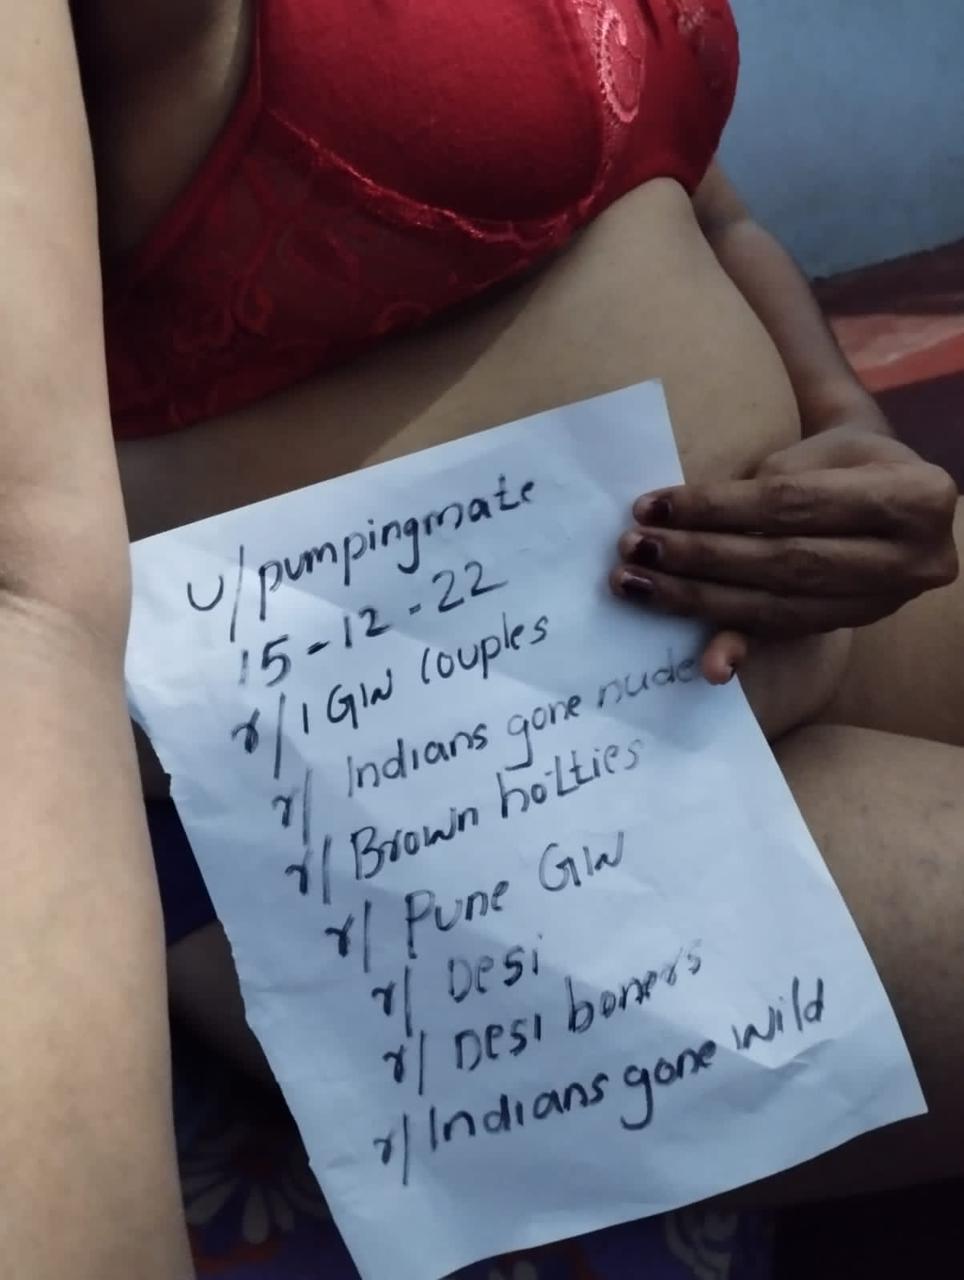 u/pumpingmate
15-12-22
r/IGW Couples
r/ Indians gone nude
r/ Brown hotties
r/ Pune GW
r/ Desi
r/ Desi boners
r/ Indians gone wild